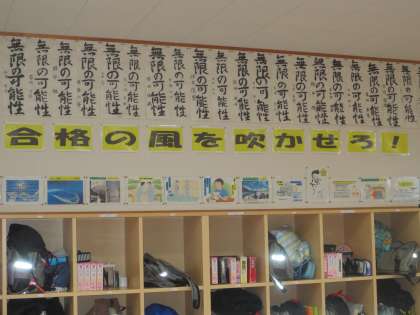 無限の可能性 無限の可能性 無限の可能性 無限の可能性 無限の可能性 無限の可能性 無限の可能性 無限の可能性 無限の可能性 無限の可能性 無限の可能性 無限の可能性 無限の可能性 無限の可能性 無限の可能性 無限の可能性 無限の可能性 無限の可能性
合格の風を吹かせろ!